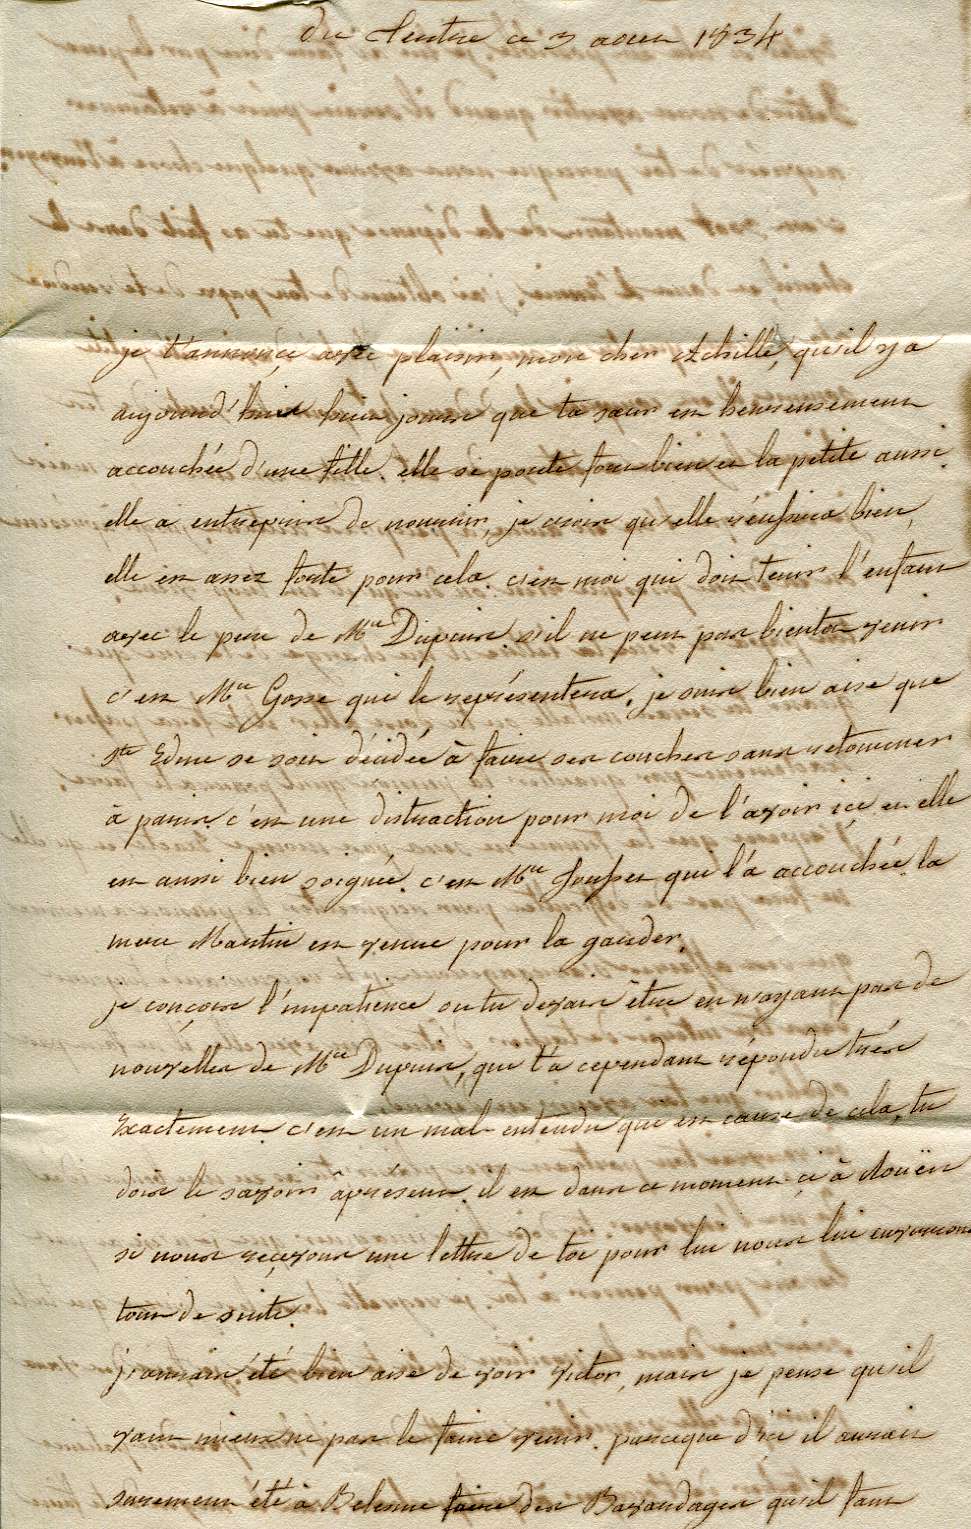 du Tertre ce 3 aout 1834
je t'annonce, avec plaisir, mon cher Achille, qu'il y a
aujourd'hui huit jours que ta sœur est heureusement
accouchée d'une fille. elle se porte fort bien et la petite aussi.
elle a entrepris de nourrir, je crois qu'elle réussira bien,
elle est assez forte pour cela. c'est moi qui dois tenir l'enfant
avec le pere de Mr Dupuis s'il ne peut pas bientot venir
c'est Mr Gosse qui le représentera. je suis bien aise que
Ste Edme se soit décidée à faire ses couches sans retourner
à paris. c'est une distraction pour moi de l'avoir ici et elle
est aussi bien soignée. c'est Mr que l'a accouchée. la
mere Martin est venue pour la garder.
je conçois l'impatience ou tu devais être en n'ayant pas de
nouvelles de Mr Dupuis, que t'a cependant répondu trés
exactement. c'est un mal-entendu qui est cause de cela, tu
dois le savoir âprésent. il est dans ce moment-çi à Rouën
si nous reçevons une lettre de toi pour lui nous lui enverrons
tout de suite.
j'aurais été bien aise de voir Victor, mais je pense qu'il
vaut mieux ne pas le faire venir. parceque d'ici il aurait
surement été à Belesme faire des Bavardages qu'il faut